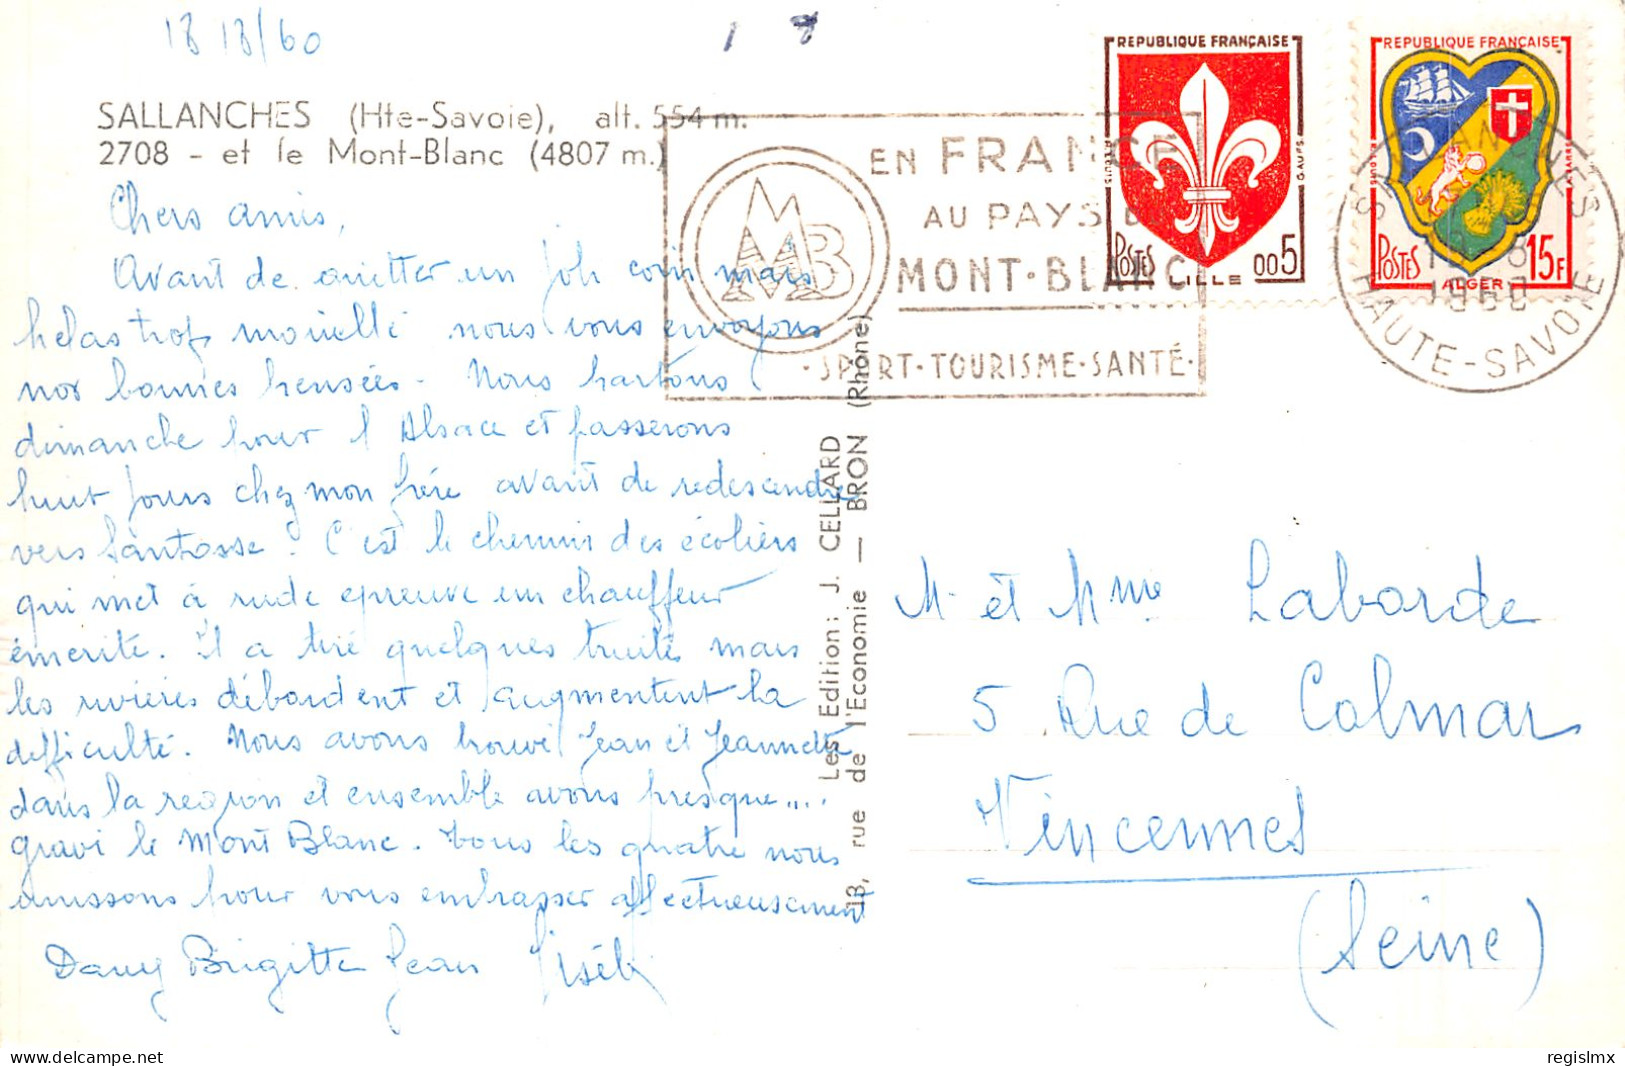 18 18/60
SALLANCHES (Hte-Savoie), alt. 554 m.
2708 - et le Mont-Blanc (4807 m.)
Chers amis,
Avant de quitter un joli coin mais
helas trop mouillé nous vous envoyons
nos bonnes pensées. Nous partons
dimanche pour l'Alsace et passerons
huit jours chez mon frère avant de redescendre
vers . C'est le chemin des écoliers
qui met à rude epreuve un chauffeur
émerité. Il a tiré quelques truites mais
les rivières débordent et augmentent la
difficulté. Nous avons trouvé Jean et Jeannette
dans la region et ensemble avons presque....
gravi le Mont Blanc. Tous les quatre nous
unissons pour vous embrasser affectueusement
Dany Brigitte Jean
Les Edition : J. CELLARD
18, rue de l'Economie — BRON (Rhône)
MB
EN FRANCE
AU PAYS DU
MONT-BLANC
·SPORT·TOURISME·SANTÉ·
REPUBLIQUE FRANÇAISE
POSTES LILLE 005
REPUBLIQUE FRANÇAISE
POSTES 15F
ALGER
SALLANCHES
1960
HAUTE-SAVOIE
M. et Mme Laborde
5 Rue de Colmar
Vincennes
(Seine)
delcampe.net
regislmx